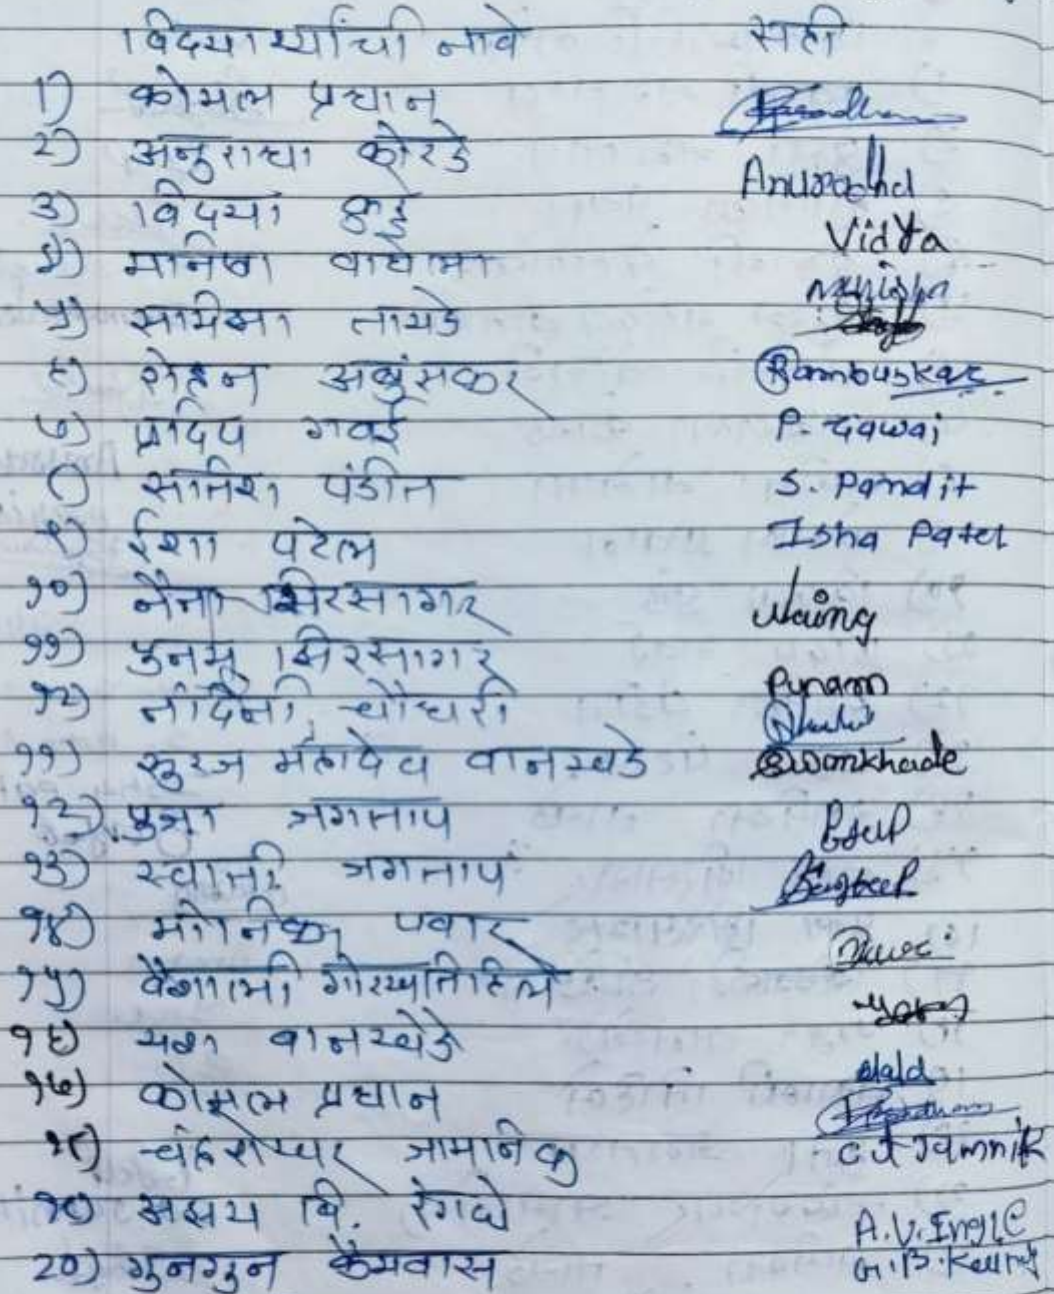 विदयार्थ्यांची नावे सही
1) कोमल प्रधान Pradhan
2) अनुराधा कोरडे Anuradha
3) विदया Vidya
४) मनिषा वाघेला Manisha
५) समिक्षा तायडे
६) रोहन अंबुसकर Rambuskar
७) प्रदिप गवई P. Gawai
८) सतिश पंडीत S. Pandit
९) ईशा पटेल Isha Patel
१०) नैना क्षिरसागर Naina
११) पुनम क्षिरसागर Punam
१२) नंदिनी चौधरी
११) सुरज महादेव वानखडे Swankhade
१२) पुजा जगताप
१३) स्वाती जगताप
१४) मोनिका पवार
१५) वैशाली
१६) यश वानखेडे
१७) कोमल प्रधान Pradhan
१८) चंद्रशेखर जामनिक C J Jamnik
१९) अक्षय वि. इंगळे A.V. Ingle
20) गुनगुन कैथवास